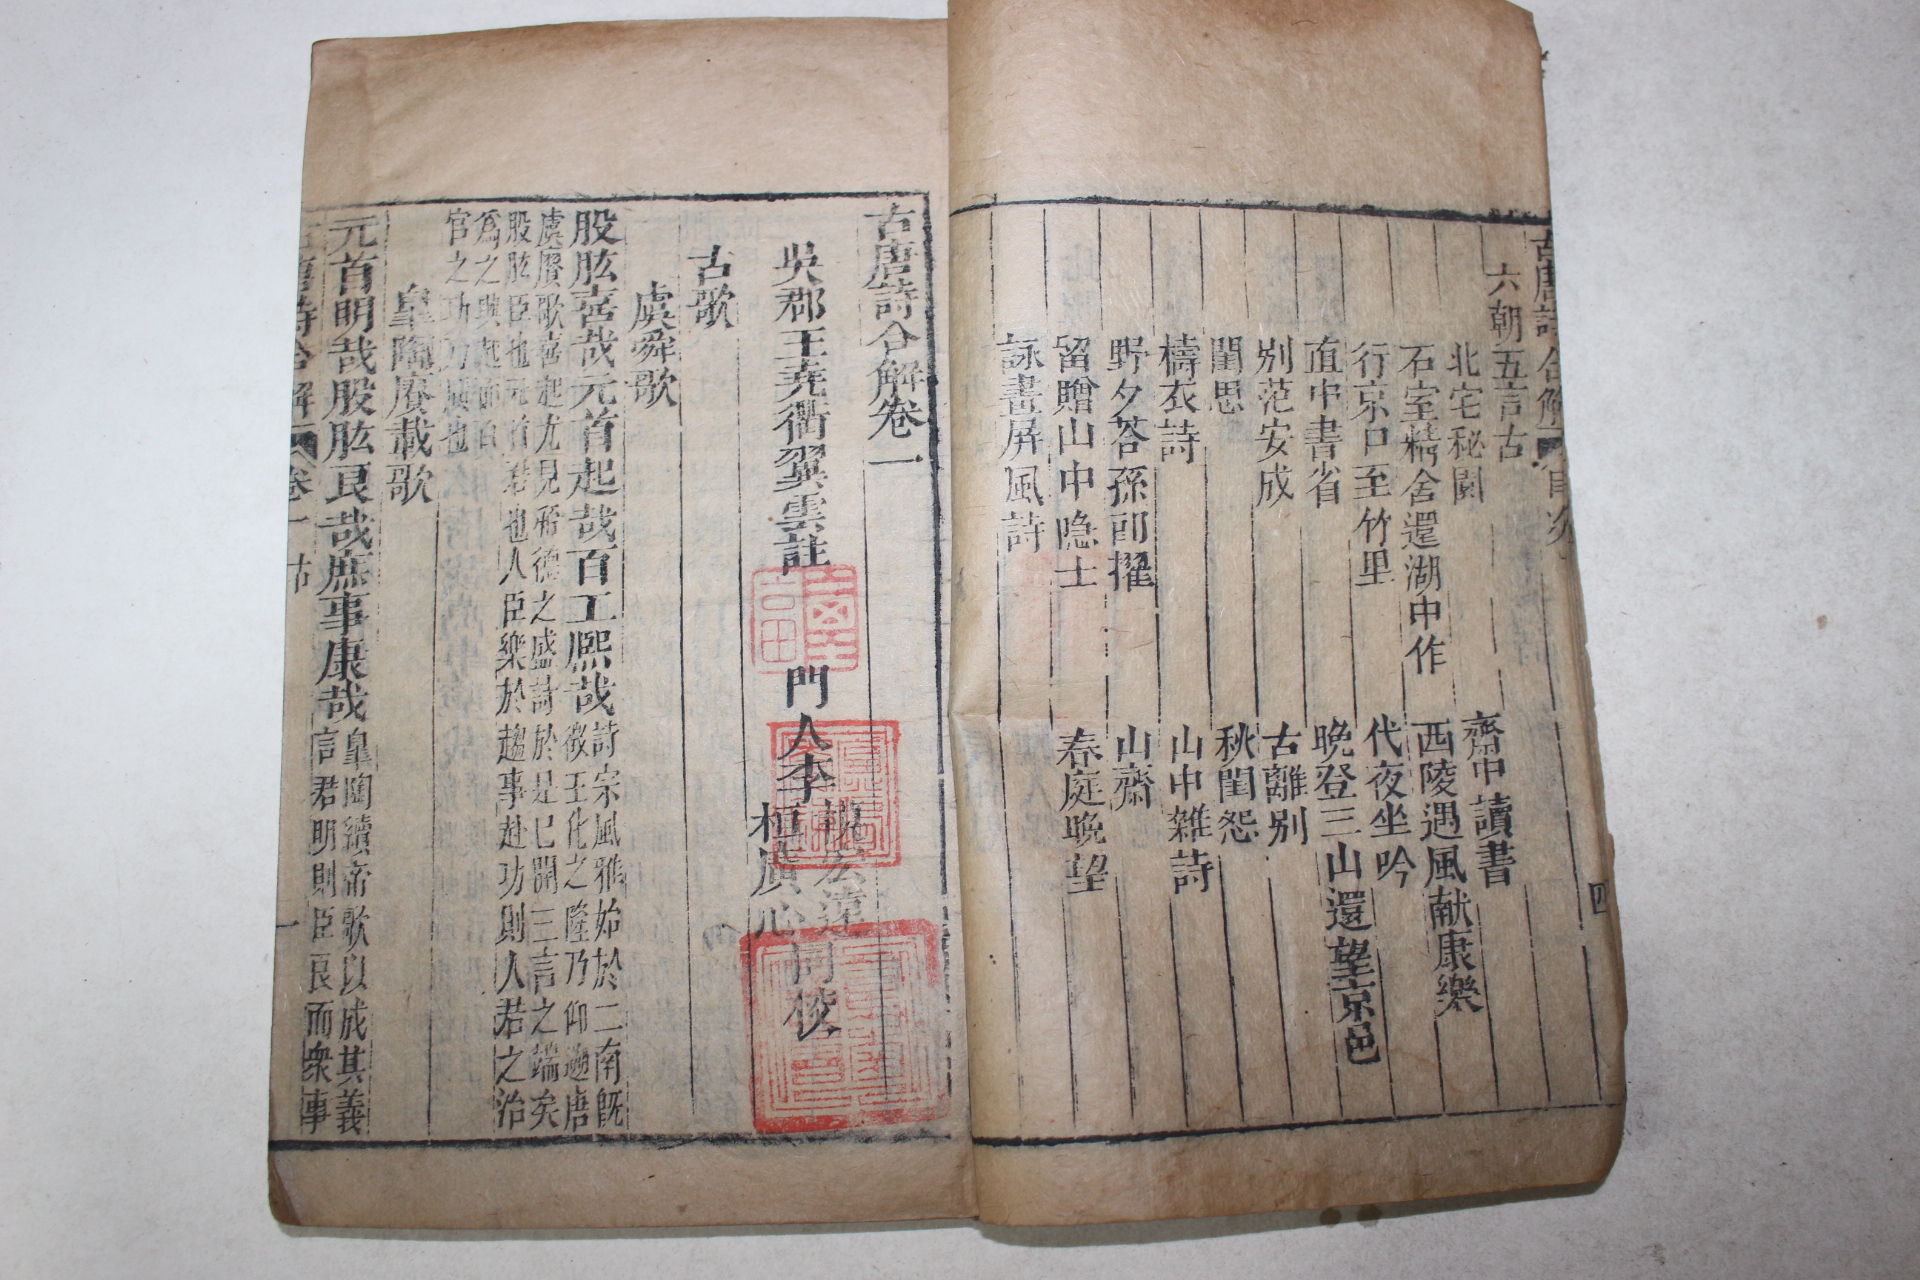 古唐詩合解 目次
六朝五言古
北宅秘園
齋中讀書
石室精舍還湖中作
西陵遇風献康樂
行京口至竹里
代夜坐吟
直中書省
晚登三山還望京邑
別范安成
古離別
閨思
秋閨怨
檮衣詩
山中雜詩
野夕荅孫郎擢
山齋
留贈山中隐士
春庭晚望
詠畫屏風詩
四
古唐詩合解卷一
吳郡王堯衢翼雲註
門人李
桓廣心
同校
古歌
虞舜歌
股肱喜哉元首起哉百工熈哉
詩宗風雅始於二南旣
徵王化之隆乃仰遡唐
虞賡歌喜起尤見帝德之盛詩於是已開三言之端矣
股肱臣也元首君也人臣樂於趨事赴功則人君之治
為之興起而百
官之功廣也
皐陶賡載歌
元首明哉股肱良哉庶事康哉
皐陶續帝歌以成其義
言君明則臣良而衆事
古唐詩合解 卷一
一